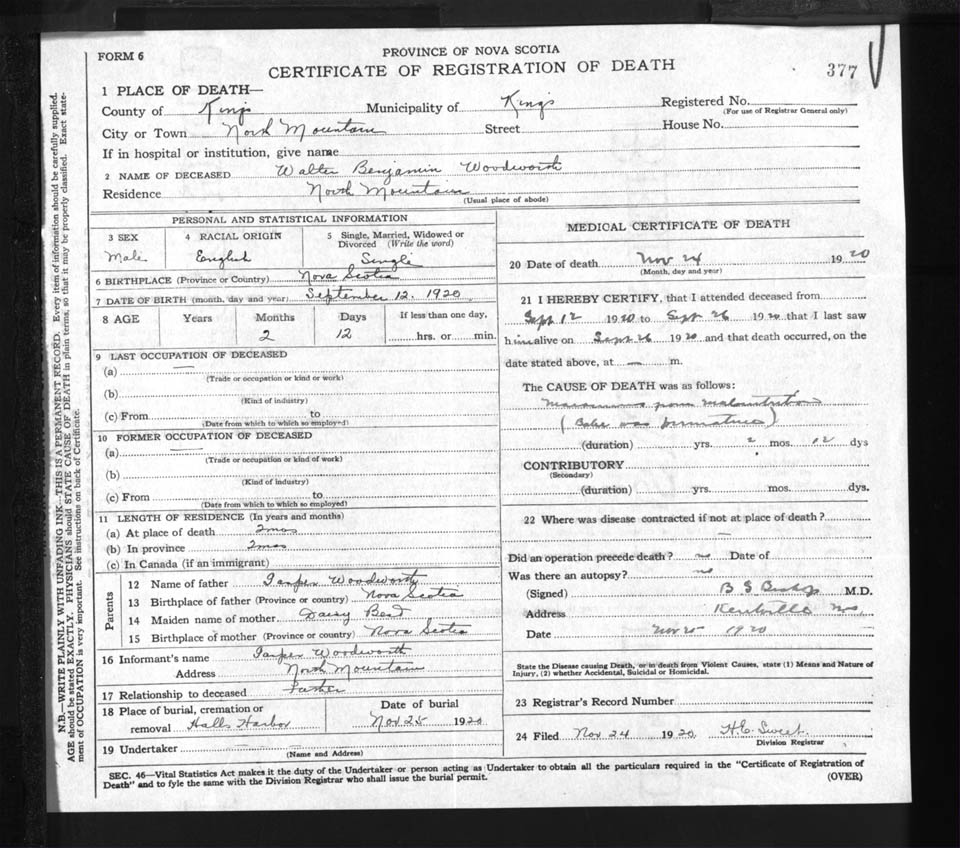 FORM 6
PROVINCE OF NOVA SCOTIA
CERTIFICATE OF REGISTRATION OF DEATH
377
1 PLACE OF DEATH—
County of Kings Municipality of Kings Registered No.
(For use of Registrar General only)
City or Town North Mountain Street House No.
If in hospital or institution, give name
2 NAME OF DECEASED Walter Benjamin Woodworth
Residence North Mountain
(Usual place of abode)
PERSONAL AND STATISTICAL INFORMATION
3 SEX 4 RACIAL ORIGIN 5 Single, Married, Widowed or Divorced (Write the word)
Male English Single
6 BIRTHPLACE (Province or Country) Nova Scotia
7 DATE OF BIRTH (month, day and year) September 12, 1920
8 AGE Years Months Days If less than one day,
2 12 hrs. or min.
9 LAST OCCUPATION OF DECEASED
(a) —
(Trade or occupation or kind or work)
(b)
(Kind of industry)
(c) From to
(Date from which to which so employed)
10 FORMER OCCUPATION OF DECEASED
(a) —
(Trade or occupation or kind of work)
(b)
(Kind of industry)
(c) From to
(Date from which to which so employed)
11 LENGTH OF RESIDENCE (In years and months)
(a) At place of death 2 mos
(b) In province 2 mos
(c) In Canada (if an immigrant)
Parents
12 Name of father Woodworth
13 Birthplace of father (Province or country) Nova Scotia
14 Maiden name of mother Daisy
15 Birthplace of mother (Province or country) Nova Scotia
16 Informant's name Woodworth
Address North Mountain
17 Relationship to deceased Father
18 Place of burial, cremation or removal Halls Harbor
Date of burial
Nov 25 1920
19 Undertaker —
(Name and Address)
MEDICAL CERTIFICATE OF DEATH
20 Date of death Nov 24 1920
(Month, day and year)
21 I HEREBY CERTIFY, that I attended deceased from
Sept 12 1920 to Sept 26 1920 that I last saw
him alive on Sept 26 1920 and that death occurred, on the
date stated above, at — m.
The CAUSE OF DEATH was as follows:
Marasmus from malnutrition
(Babe was premature)
(duration) yrs. 2 mos. 12 dys
CONTRIBUTORY
(Secondary)
(duration) yrs. mos. dys.
22 Where was disease contracted if not at place of death?
—
Did an operation precede death? no Date of
Was there an autopsy? no
(Signed) B S Bishop M.D.
Address Kentville NS
Date Nov 25 1920
State the Disease causing Death, or in death from Violent Causes, state (1) Means and Nature of
Injury, (2) whether Accidental, Suicidal or Homicidal.
23 Registrar's Record Number
24 Filed Nov 24 1920 H.E. Sweet
Division Registrar
SEC. 46—Vital Statistics Act makes it the duty of the Undertaker or person acting as Undertaker to obtain all the particulars required in the "Certificate of Registration of
Death" and to fyle the same with the Division Registrar who shall issue the burial permit.
(OVER)
N.B.—WRITE PLAINLY, WITH UNFADING INK—THIS IS A PERMANENT RECORD. Every item of information should be carefully supplied.
AGE should be stated EXACTLY. PHYSICIANS should STATE CAUSE OF DEATH in plain terms, so that it may be properly classified. Exact state-
ment of OCCUPATION is very important. See instructions on back of Certificate.